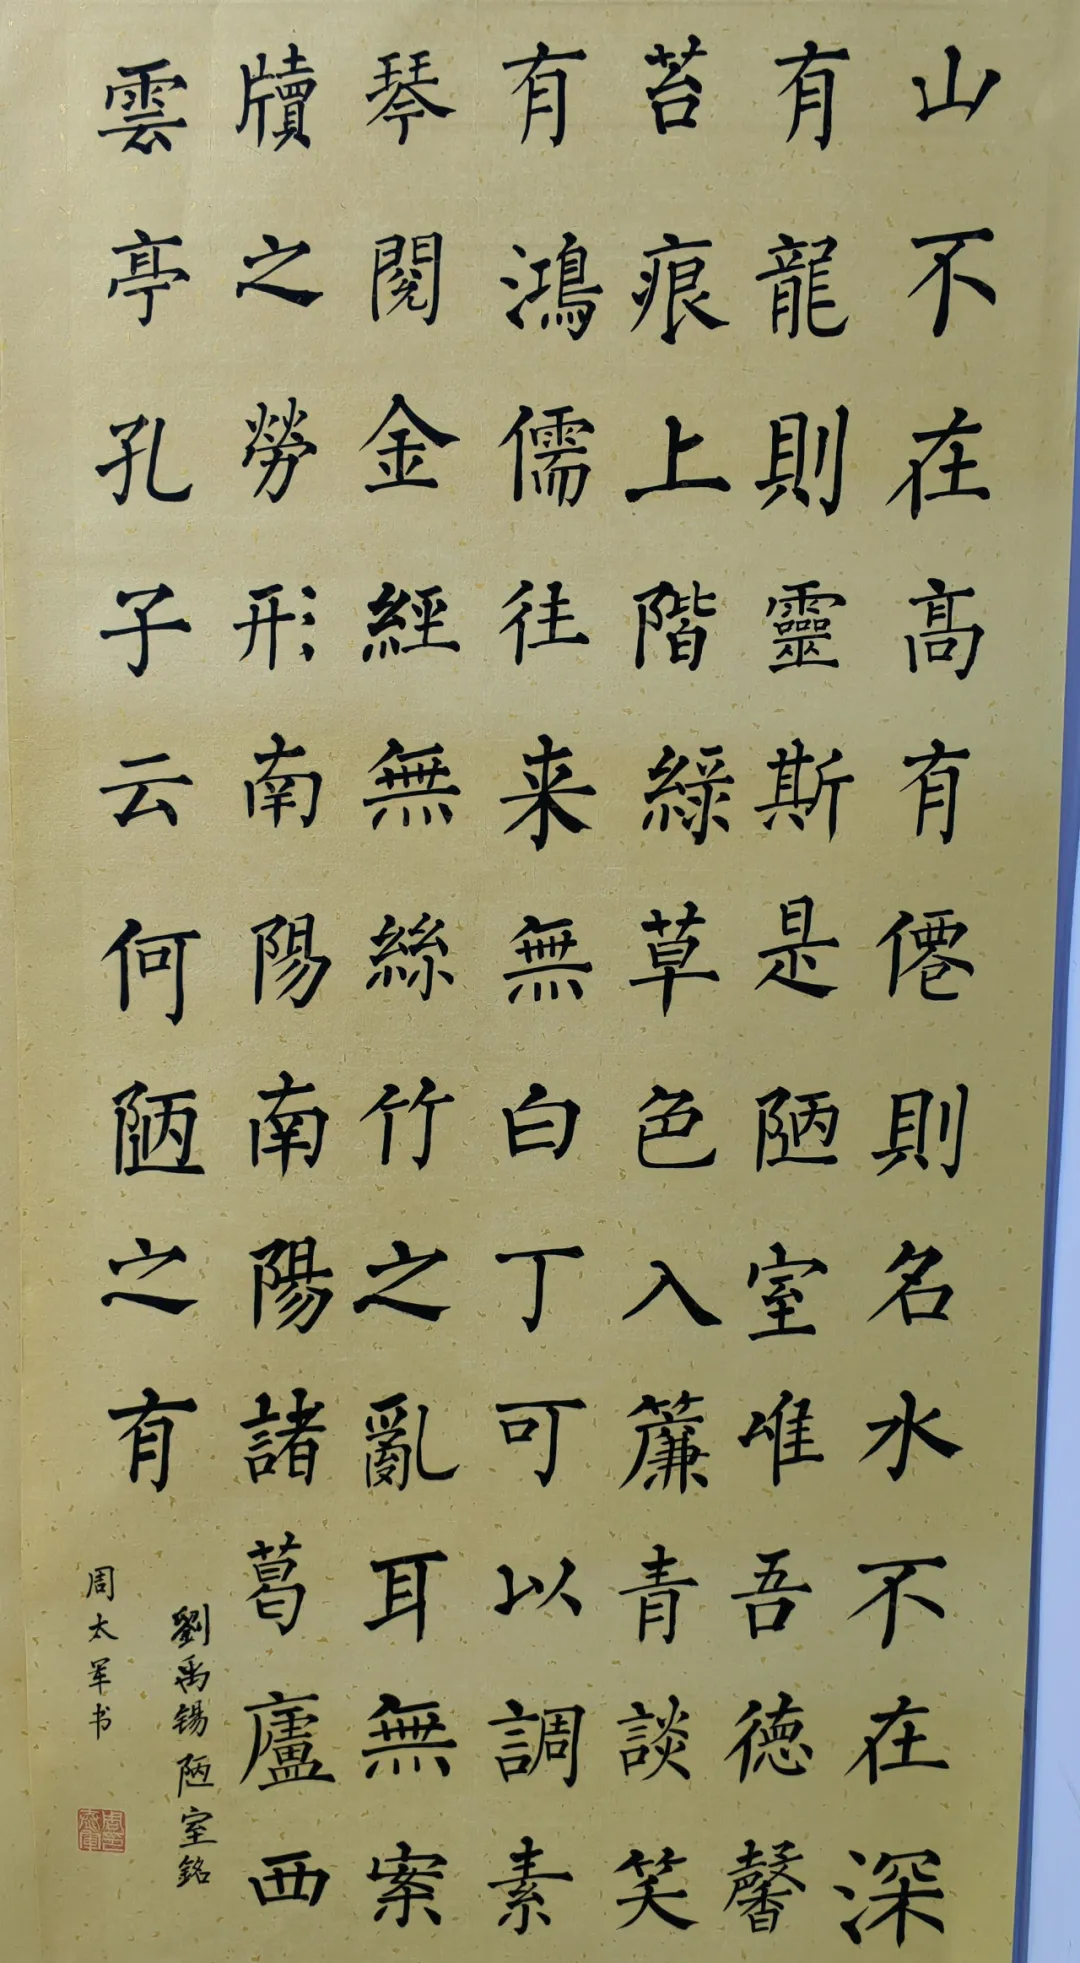 山不在髙有僊則名水不在深
有龍則靈斯是陋室唯吾德馨
苔痕上階綠草色入簾青談笑
有鴻儒往来無白丁可以調素
琴閱金經無絲竹之亂耳無案
牘之勞形南陽南陽諸葛廬西
雲亭孔子云何陋之有
劉禹锡陋室銘
周太军书